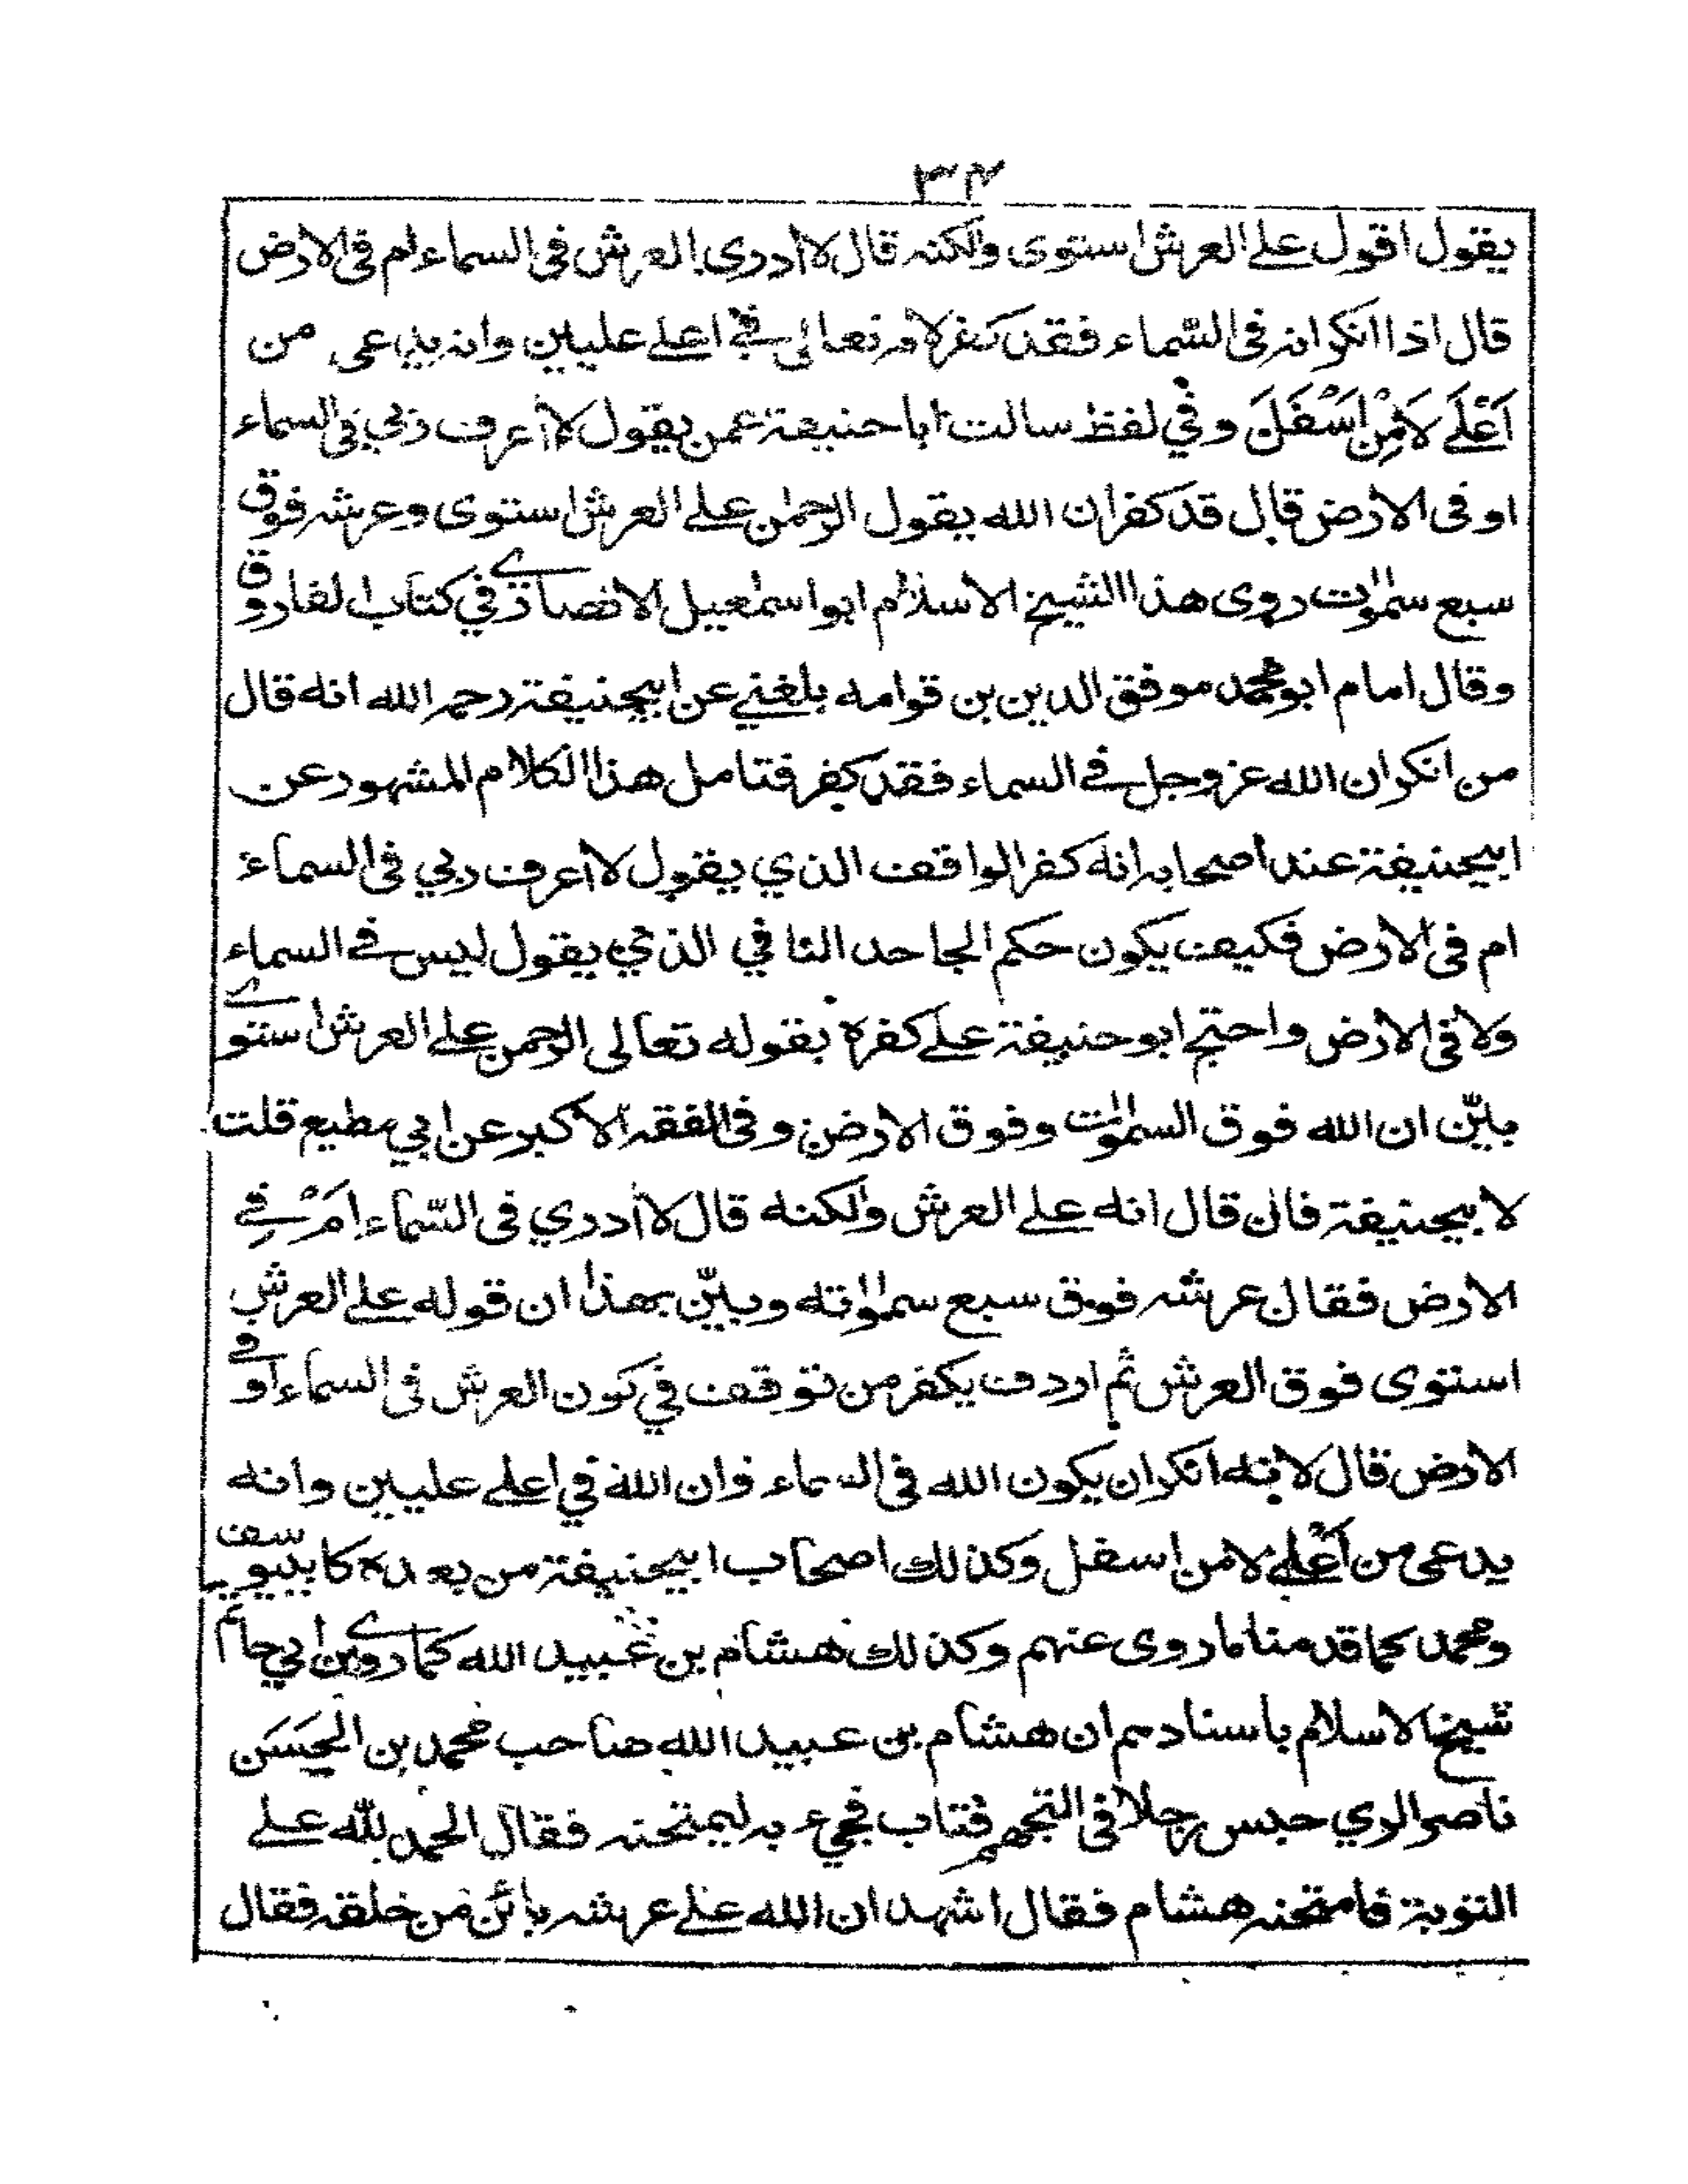 ٣٤
يقول اقول على العرش استوى ولكنه قال لا أدرى العرش فى السماء ام فى الارض
قال اذا انكر انه فى السماء فقد كفر لانه تعالى فى اعلى عليين وانه يدعى من
اَعْلَےٰ لَا مِنْ اَسْفَلَ وفي لفظ سالت ابا حنيفة عمن يقول لا أعرف ربي فى السماء
او فى الارض قال قد كفر ان الله يقول الرحمٰن على العرش استوى وعرشه فوق
سبع سمٰوٰت روى هذا الشيخ الاسلام ابو اسمٰعيل الانصارى في كتاب الفاروق
وقال امام ابو محمد موفق الدين بن قوامه بلغنى عن ابيحنيفة رحمه الله انه قال
من انكر ان الله عز وجل فى السماء فقد كفر فتامل هذا الكلام المشهور عن
ابيحنيفة عند اصحابه انه كفر الواقف الذي يقول لا أعرف ربي فى السماء
ام فى الارض فكيف يكون حكم الجاحد النافي الذي يقول ليس فى السماء
ولا فى الارض واحتج ابو حنيفة على كفره بقوله تعالى الرحمن على العرش استوى
بيّن ان الله فوق السمٰوٰت وفوق الارض وفى الفقه الاكبر عن ابي مطيع قلت
لابيحنيفة فان قال انه على العرش ولكنه قال لا أدري فى السّماء اَمْ فِى
الارض فقال عرشه فوق سبع سمٰوٰته وبيّن بهذا ان قوله على العرش
استوى فوق العرش ثم اردف يكفر من توقف في كون العرش فى السماء او فى
الارض قال لانه انكر ان يكون الله فى السماء وان الله في اعلى عليين وانه
يدعى من اَعْلى لا من اسفل وكذلك اصحاب ابيحنيفة من بعده كابييوسف
ومحمد كما قدمنا ما روى عنهم وكذلك هشام بن عبيد الله كما روى ابن ابي حاتم
شيخ الاسلام باسنادهم ان هشام بن عبيد الله صاحب محمد بن الحَسَن
ناصر الري حبس رجلا فى التجهم فتاب فجيء به ليمتحنه فقال الحمد لله على
التوبة فامتحنه هشام فقال اشهد ان الله على عرشه بائن من خلقه فقال